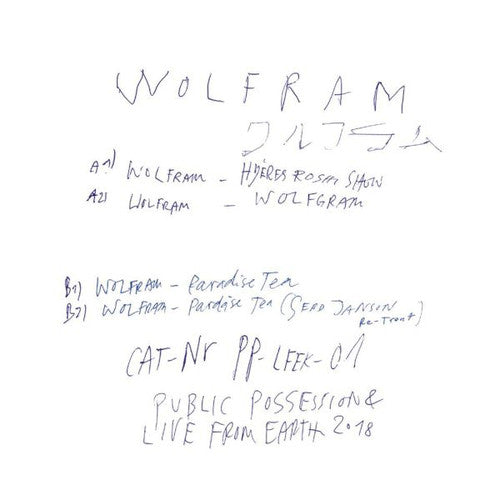 WOLFRAM
A1) WOLFRAM – HYÈRES ROSHI SHOW
A2) WOLFRAM – WOLFGRAM
B1) WOLFRAM – Paradise Tea
B2) WOLFRAM – Pardise Tea (GERD JANSON
Re-Treat)
CAT-Nr PP-LFEK-01
PUBLIC POSSESSION &
LIVE FROM EARTH 2018